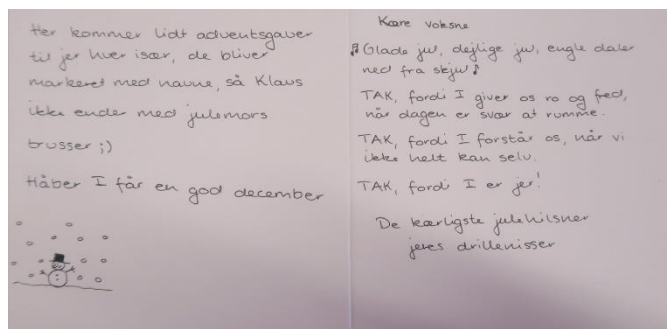 Her kommer lidt adventsgaver
til jer hver især, de bliver
markeret med navne, så Klaus
ikke ender med julemors
trusser ;)
Håber I får en god december
Kære voksne
♫ Glade jul, dejlige jul, engle daler
ned fra skjul ♪
TAK, fordi I giver os ro og fred,
når dagen er svær at rumme.
TAK, fordi I forstår os, når vi
ikke helt kan selv.
TAK, fordi I er jer!
De kærligste julehilsner
jeres drillenisser